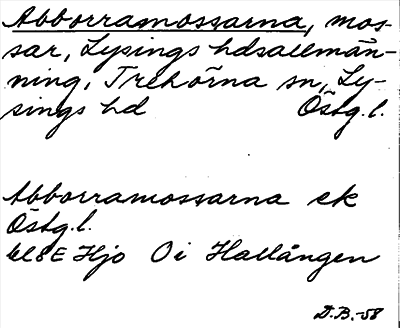 Abborramossarna, mos-
sar, Lysings hdsallmän-
ning, Trehörna sn, Ly-
sings hd Östg.l.
Abborramossarna ek
Östg.l.
bl 8E Hjo Oi Hallången
D.B.-58